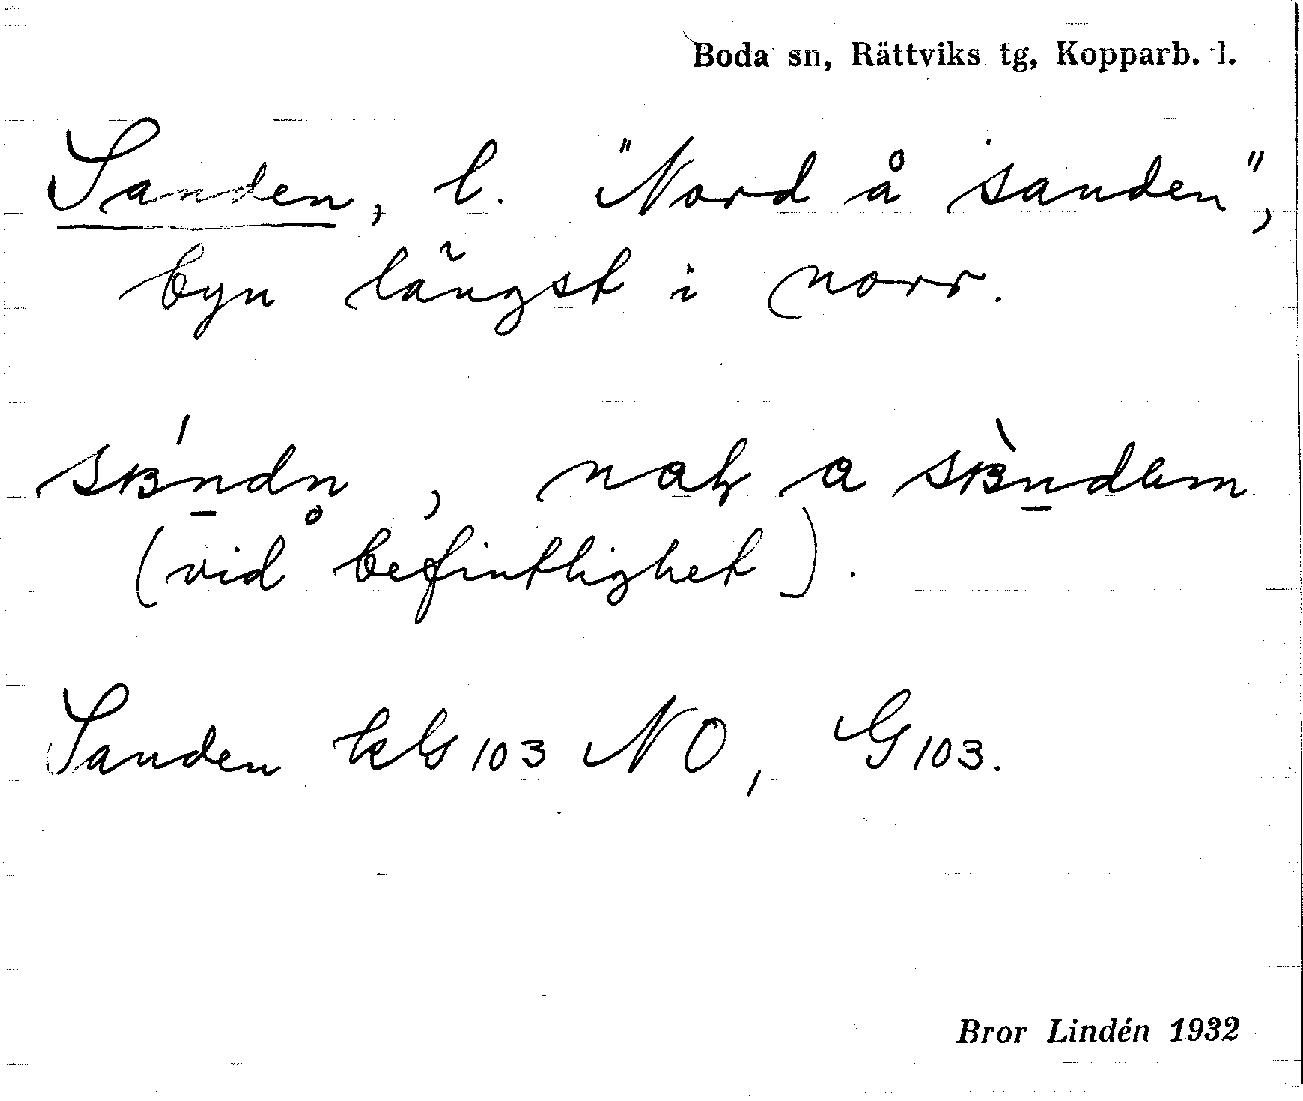 Boda sn, Rättviks tg, Kopparb. l.
Sanden, l. "Nord å sanden",
byn längst i norr.
a
(vid befintlighet).
Sanden kG 103 NO, G 103.
Bror Lindén 1932